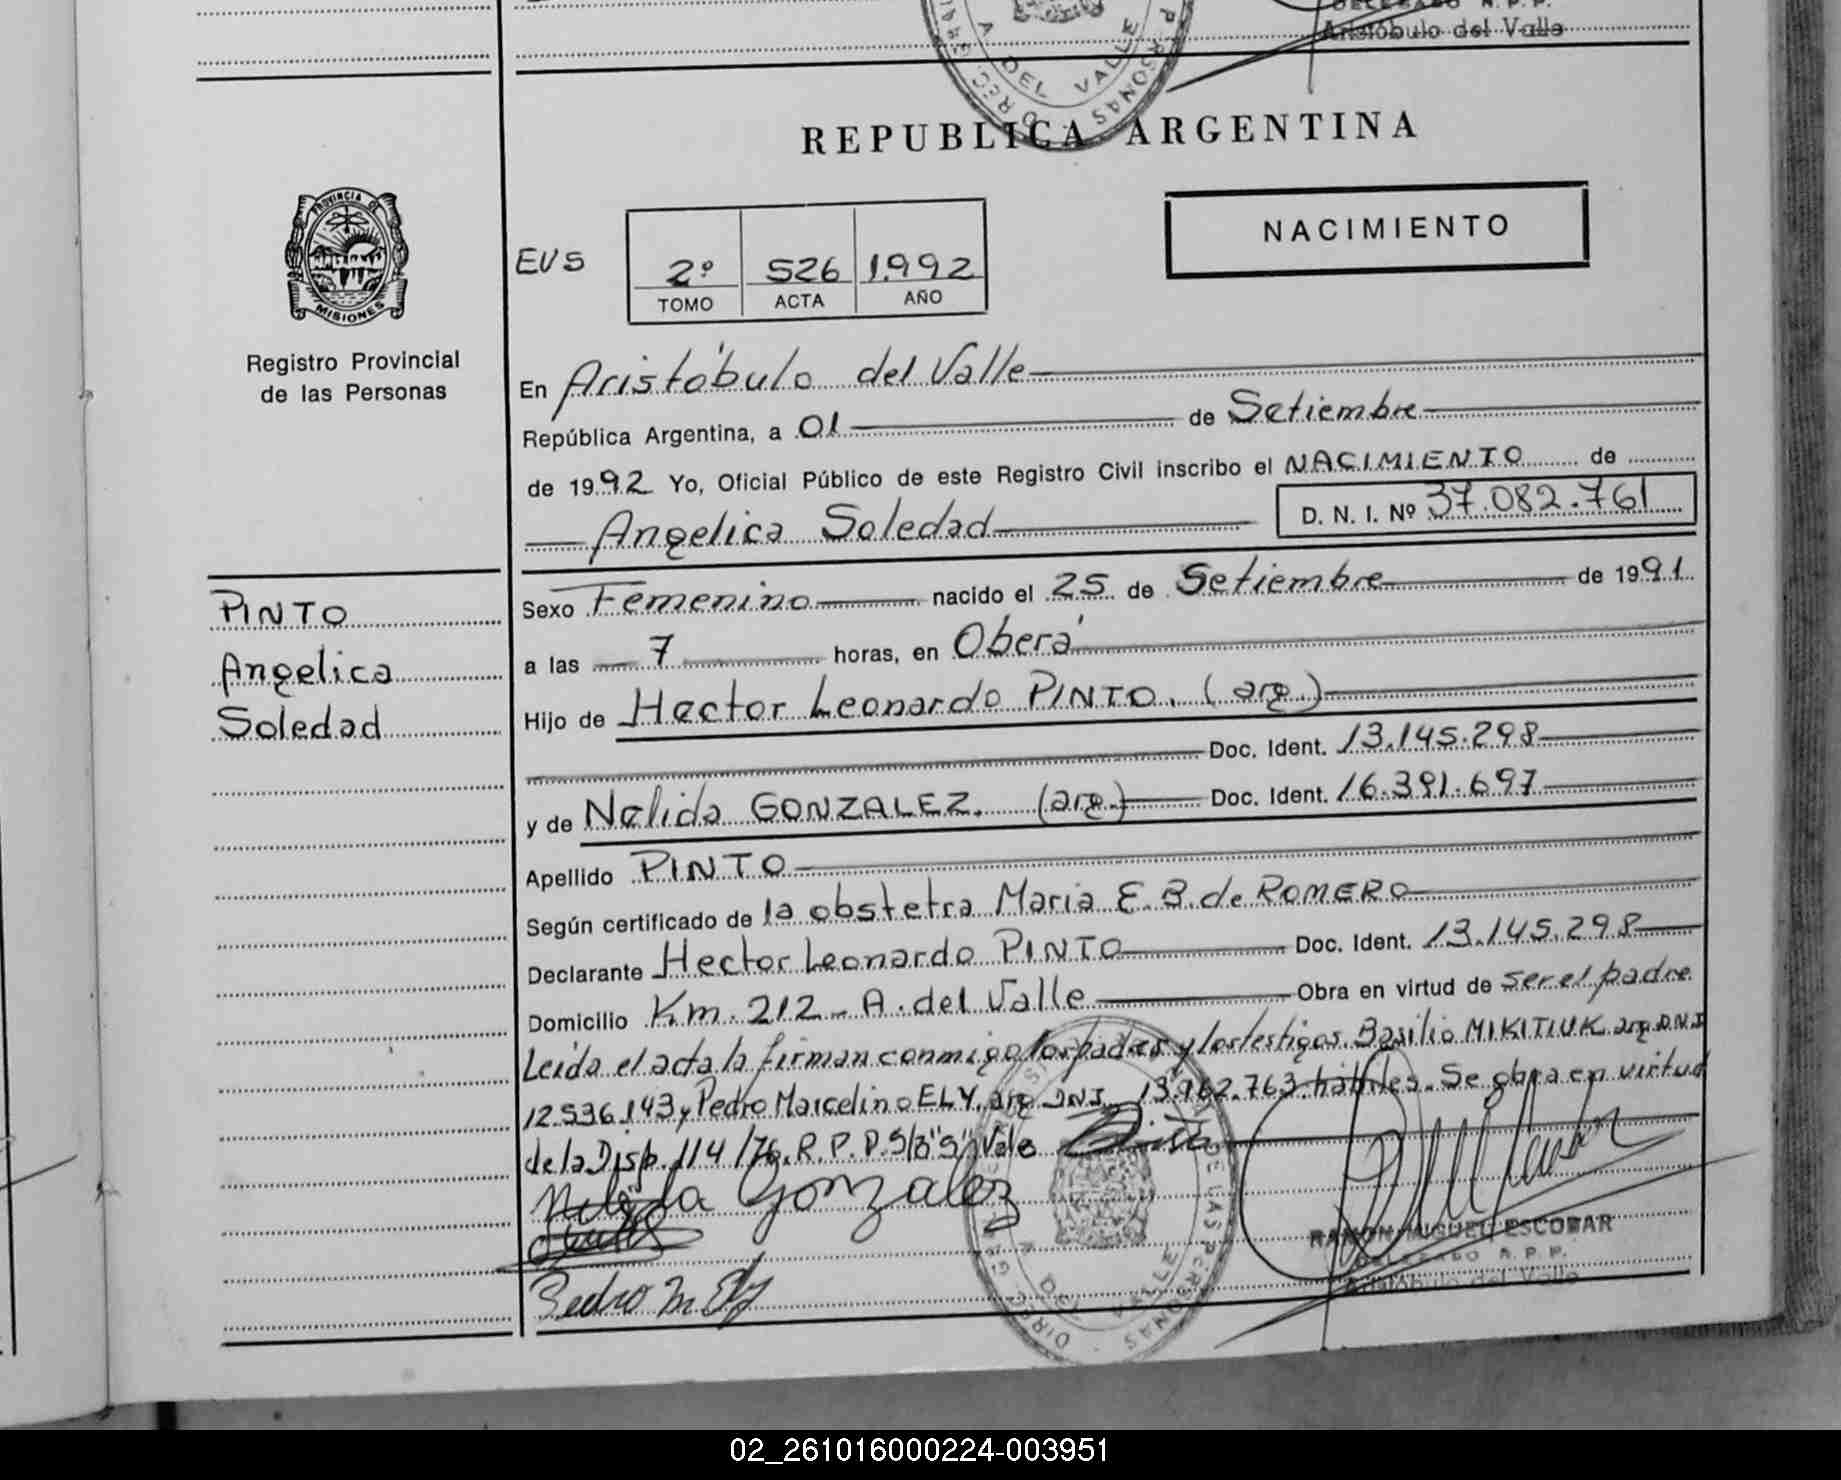 DELEGADO R. P. P.
Aristóbulo del Valle
A DEL VALLE
REPUBLICA ARGENTINA
PROVINCIA DE
MISIONES
Registro Provincial
de las Personas
EVS
2º 526 1.992
TOMO ACTA AÑO
NACIMIENTO
En Aristóbulo del Valle
República Argentina, a 01 de Setiembre
de 1992 Yo, Oficial Público de este Registro Civil inscribo el NACIMIENTO de
Angelica Soledad D. N. I. Nº 37.082.761
PINTO
Angelica
Soledad
Sexo Femenino nacido el 25 de Setiembre de 1991
a las 7 horas, en Oberá
Hijo de Hector Leonardo PINTO. (arg.)
Doc. Ident. 13.145.298
y de Nelida GONZALEZ. (arg.) Doc. Ident. 16.391.697
Apellido PINTO
Según certificado de la obstetra Maria E. B. de ROMERO
Declarante Hector Leonardo PINTO Doc. Ident. 13.145.298
Domicilio Km. 212 - A. del Valle Obra en virtud de ser el padre
Leida el acta la firman conmigo los padres y los testigos. Basilio MIKITIUK arg. D.N.I
12.536.143 y Pedro Marcelino ELY. arg DNI. 13.962.763 hábiles. Se obra en virtud
de la Disp. 114/76. R. P. P. S/B "S" Vale
Nelida Gonzalez
Pedro M. Ely
RAMON MIGUEL ESCOBAR
DELEGADO R. P. P.
Aristóbulo del Valle
02_261016000224-003951